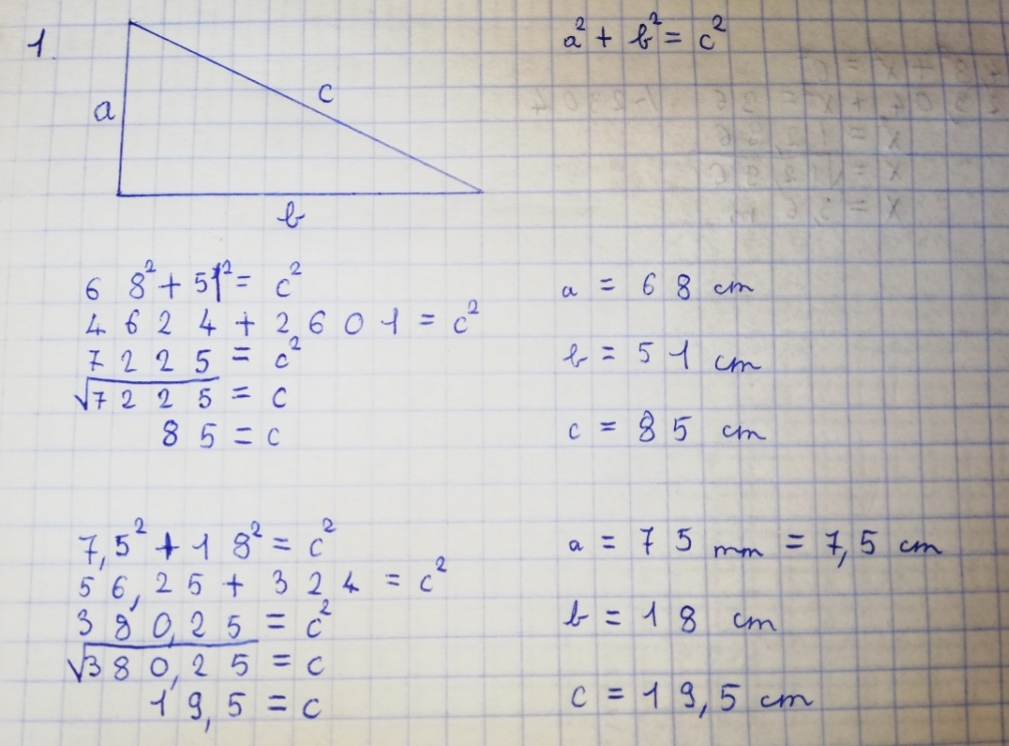 1.
a² + b² = c²
a
c
b
68² + 51² = c²
4624 + 2601 = c²
7225 = c²
√7225 = c
85 = c
a = 68 cm
b = 51 cm
c = 85 cm
7,5² + 18² = c²
56,25 + 324 = c²
380,25 = c²
√380,25 = c
19,5 = c
a = 75 mm = 7,5 cm
b = 18 cm
c = 19,5 cm